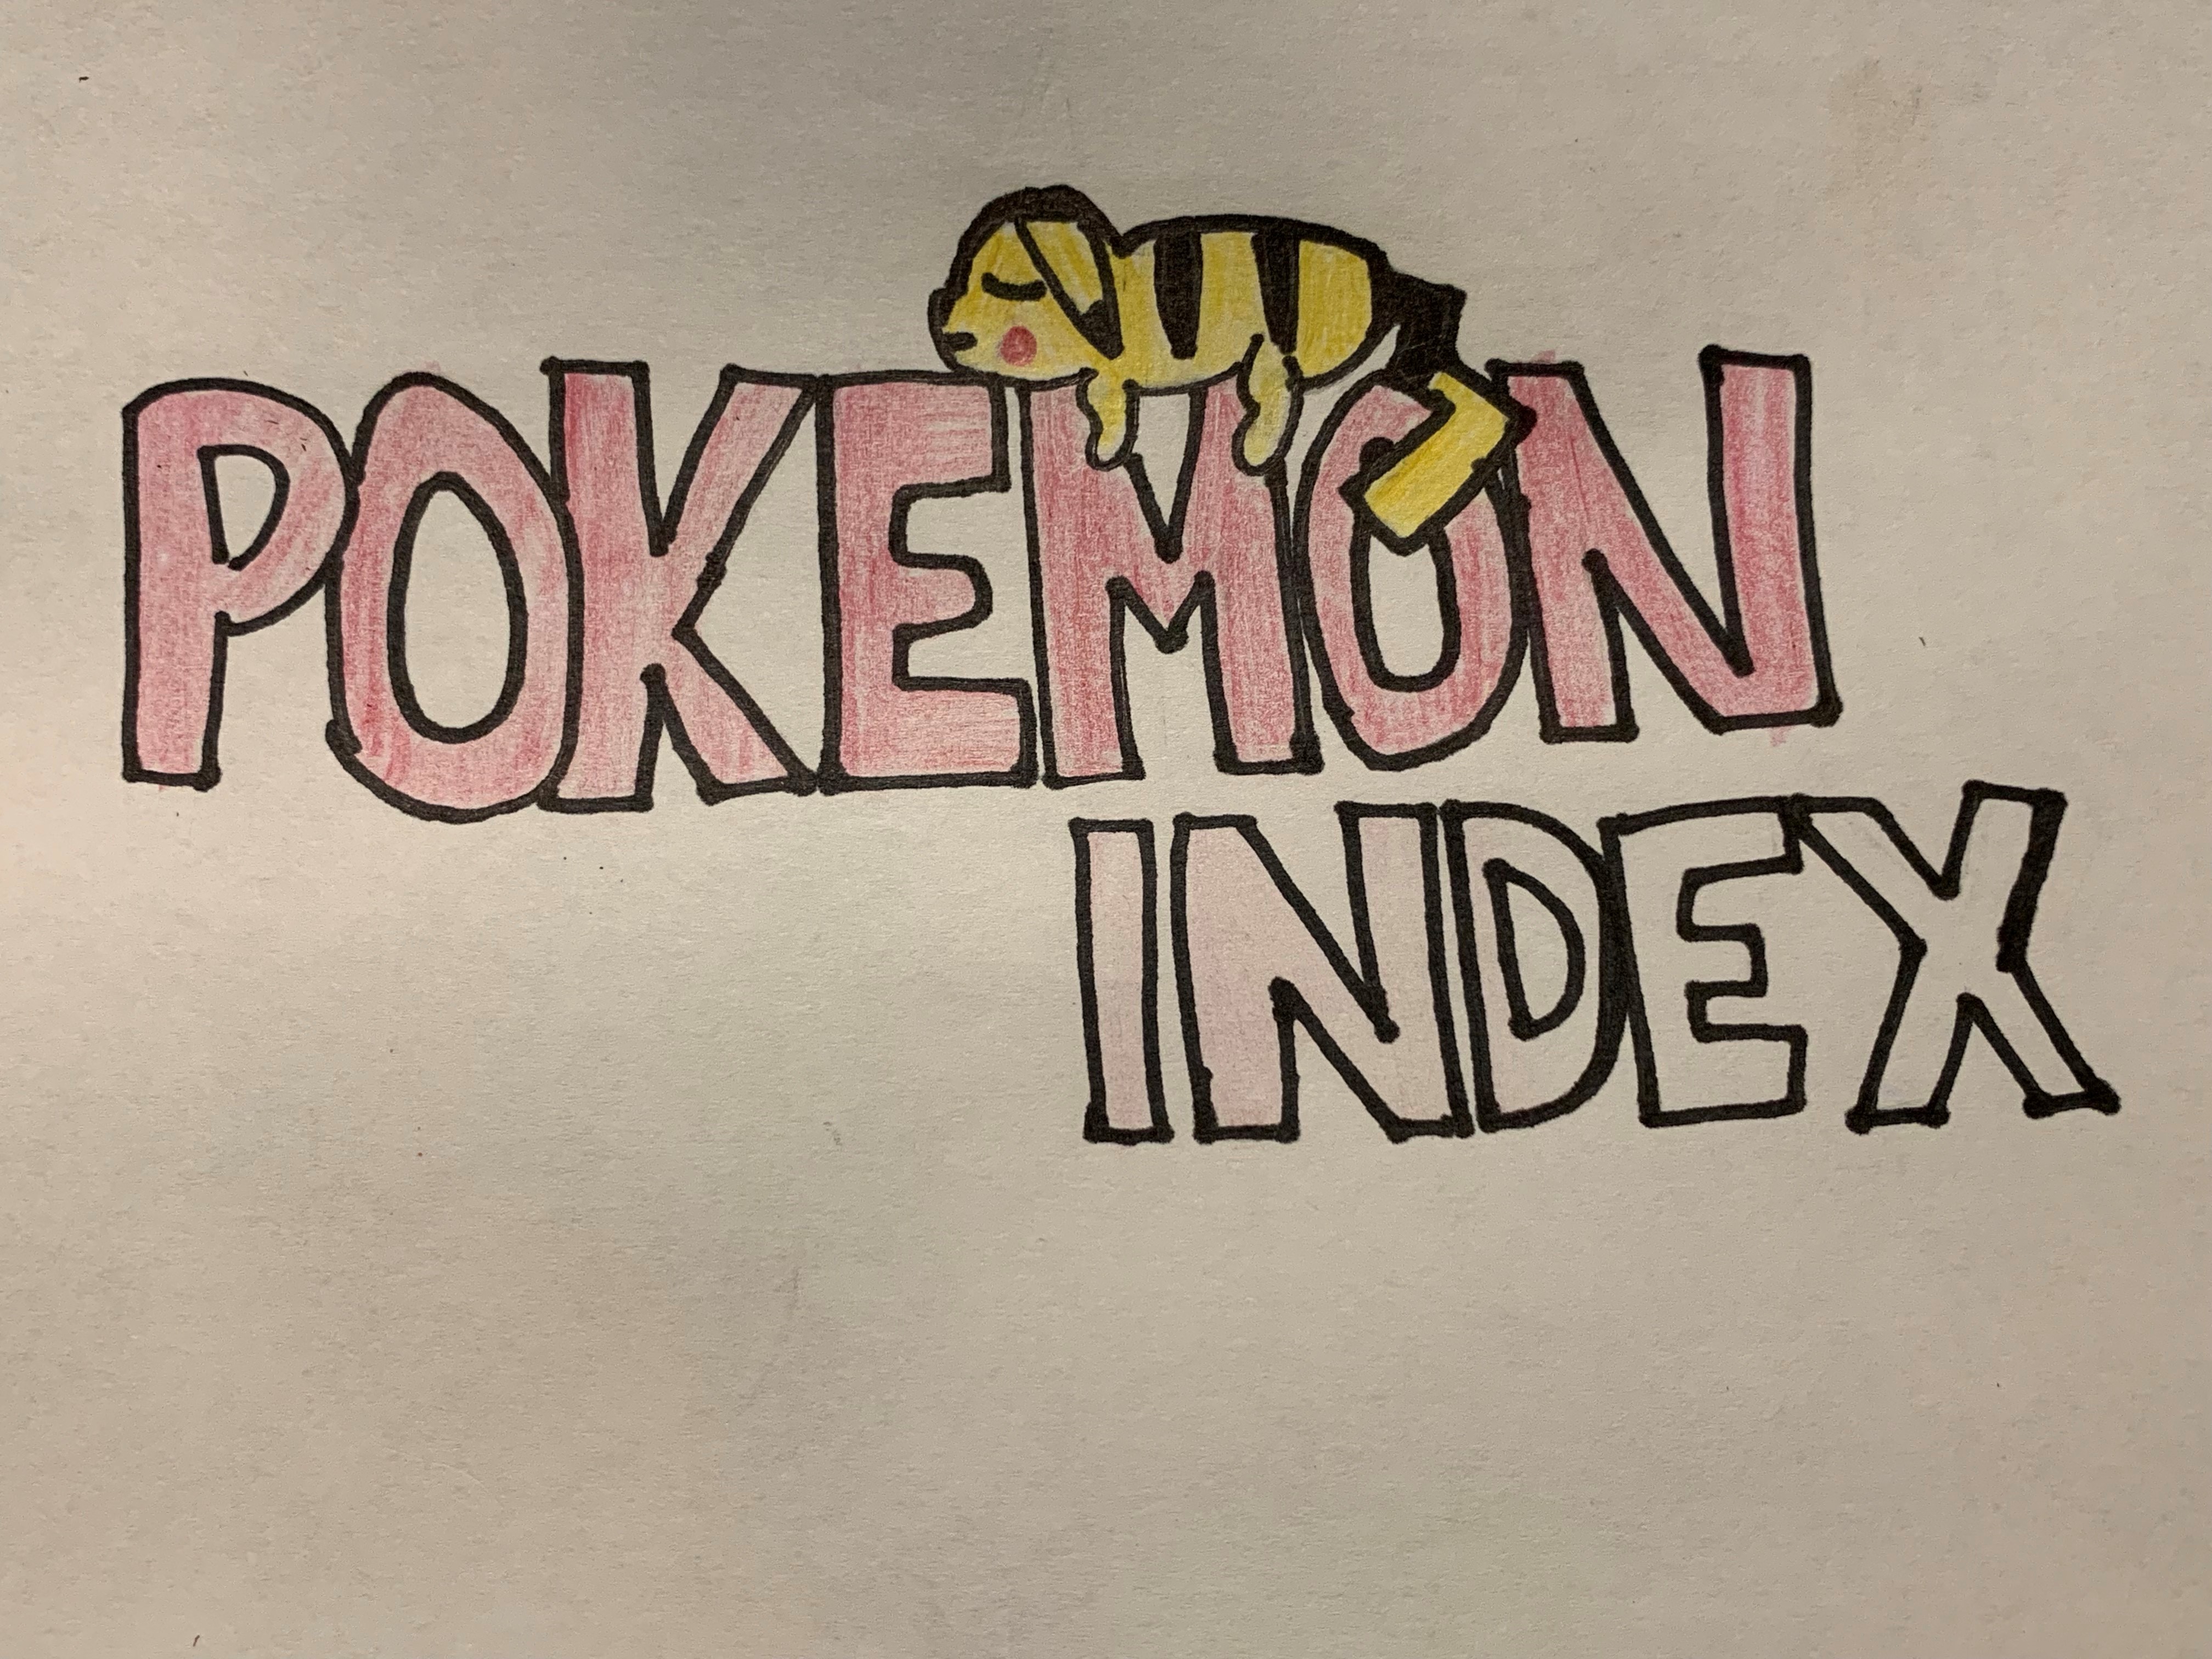 POKEMON
INDEX